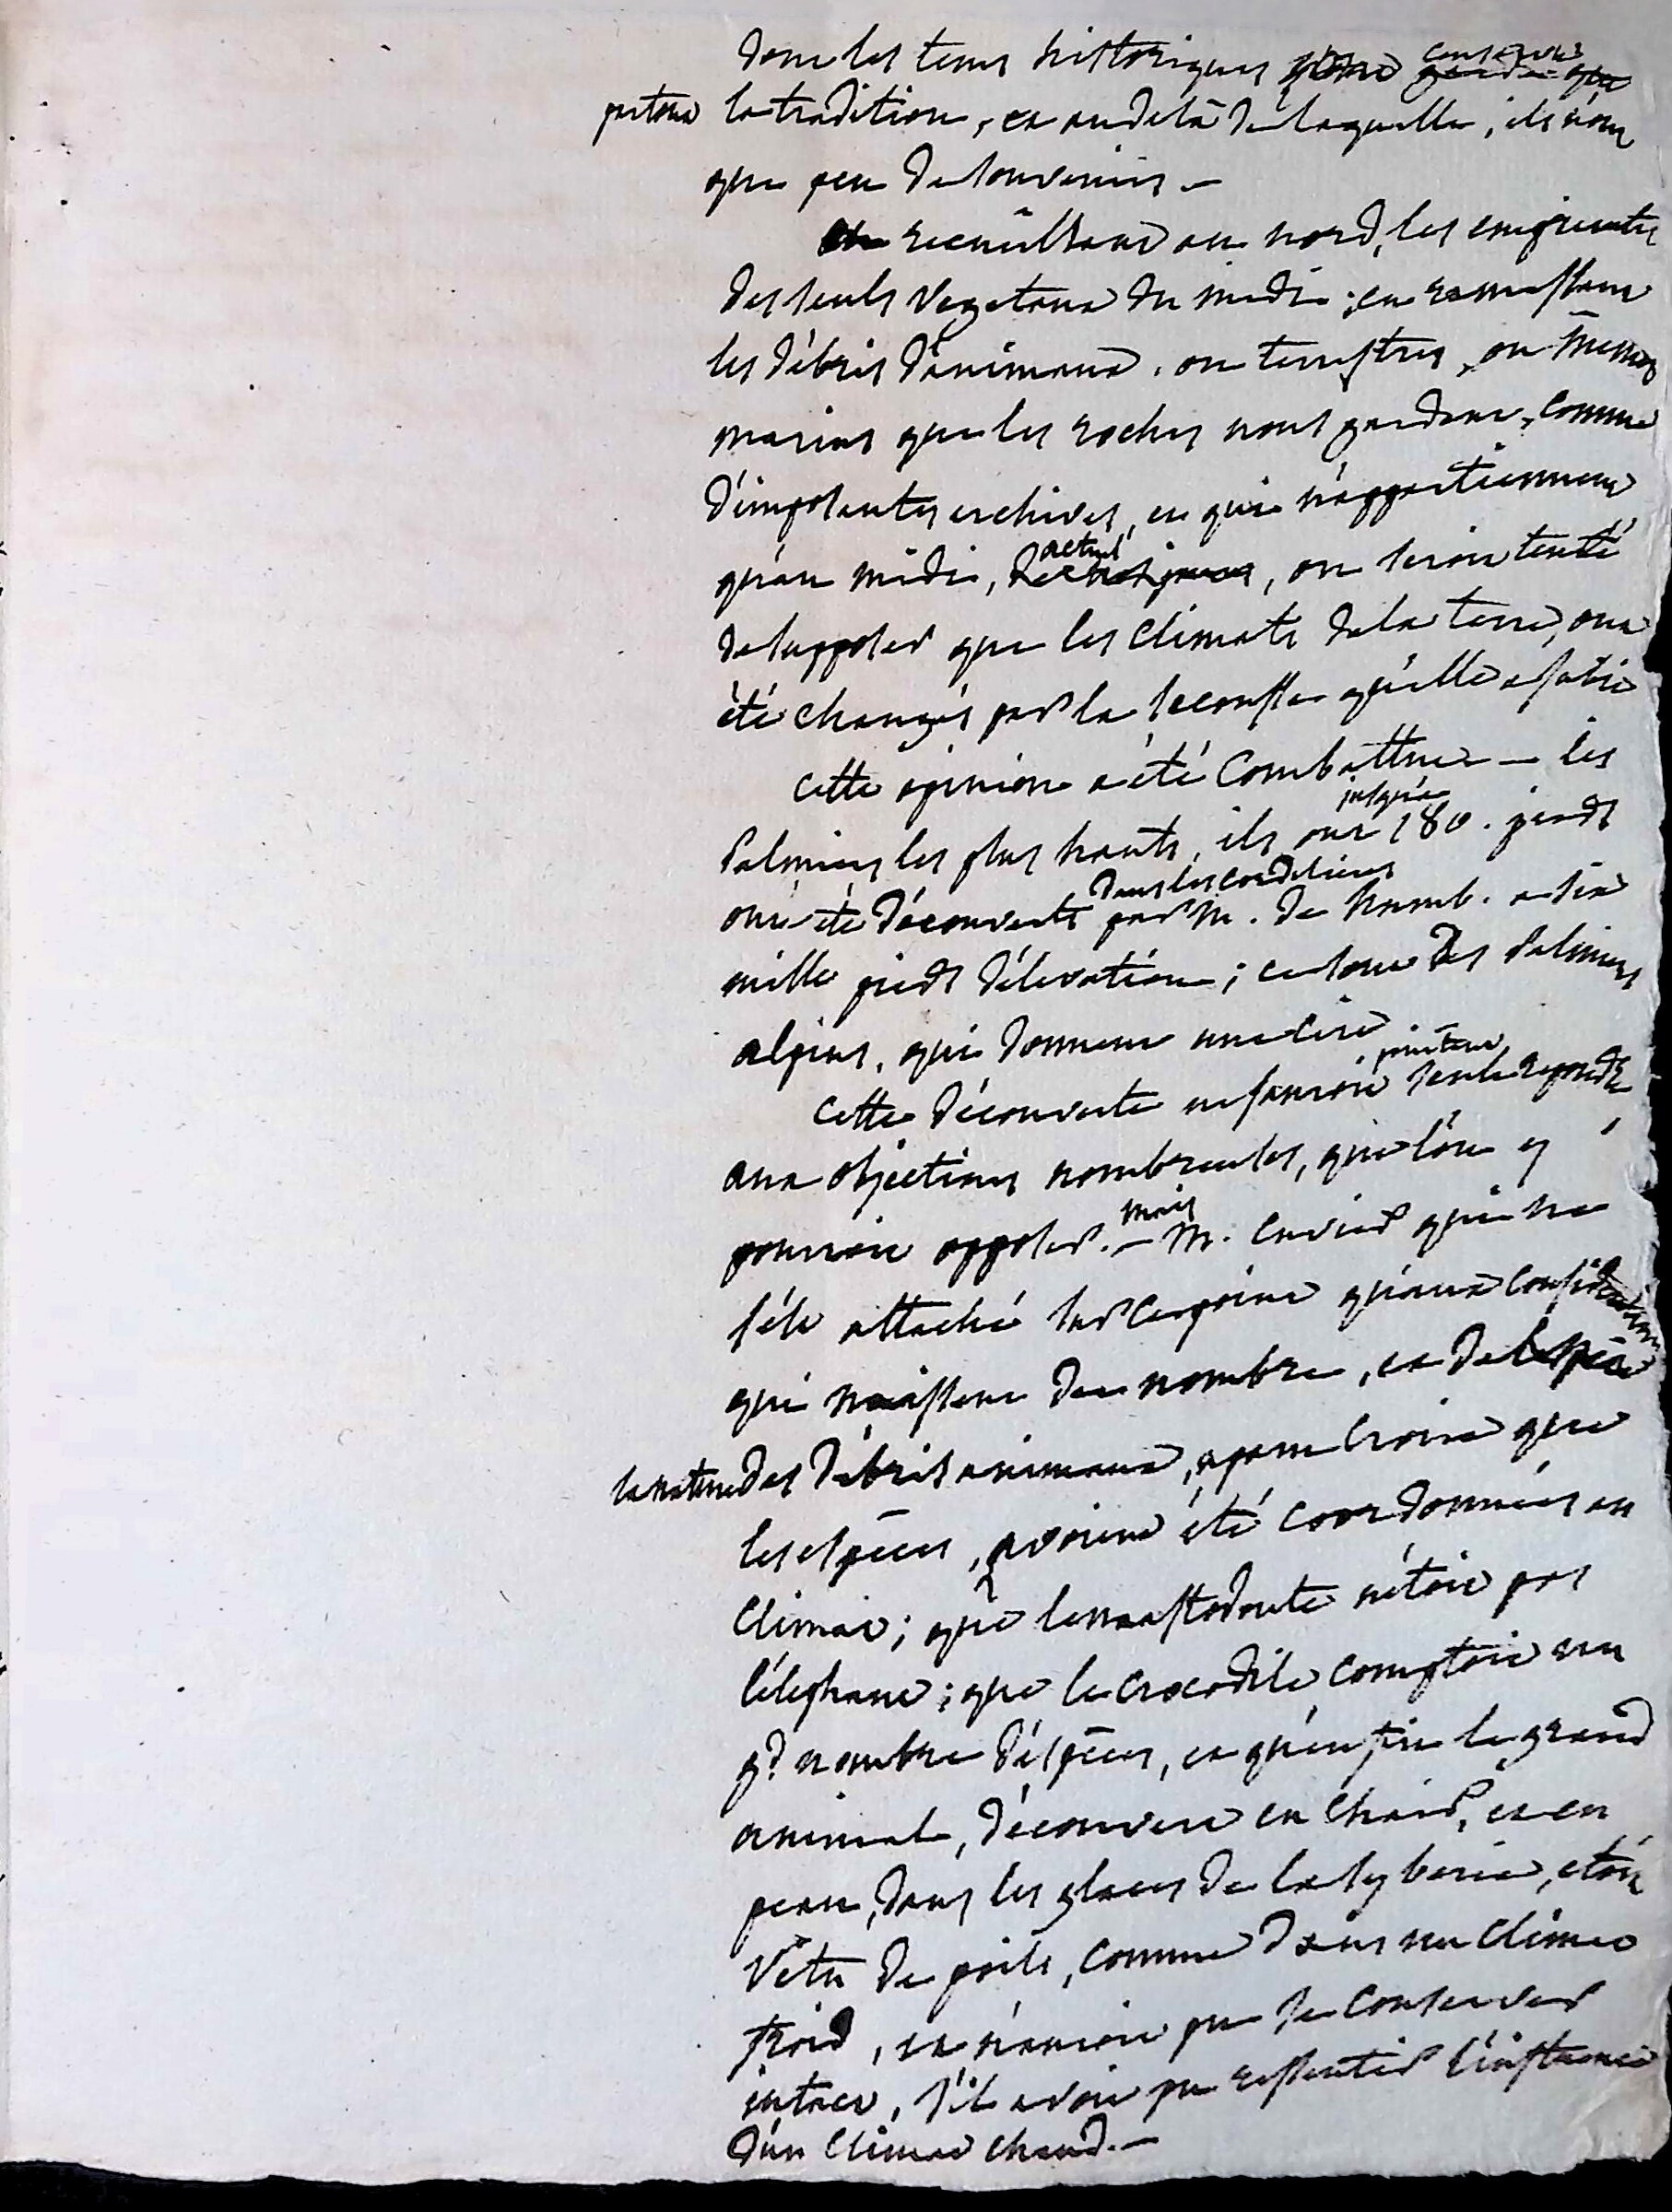 dont les tems historiques conservés
partout la tradition, et au delà de laquelle, ils n'ont
que peu de souvenirs. —
recueillant au nord, les empreintes
des seuls vegetaux du midi ; en ramassant
les débris d'animaux, ou terrestres, ou mêmes
marins que les roches nous gardent, comme
d'imposantes archives, et qui n'appartiennent
qu'au midi, actuel, on seroit tenté
de supposer que les climats de la terre, ont
été changés par la secousse qu'elle a subie
cette opinion a été combattue — les
Palmiers les plus hauts, ils ont jusqu'à 180. pieds
ont été découverts dans les cordelieres par M. de Humb. a six
mille pieds d'élevation ; ce sont des Palmiers
alpins, qui donnent une cire
cette découverte ne sauroit pourtant, seule repondre
aux objections nombreuses, que l'on y
pourroit opposer. — mais M. Cuvier qui ne
s'est attaché sur ce point qu'aux considerations
qui naissent du nombre, et de l'espèce
la nature des débris animaux, a pu croire que
les espèces, avoient été coordonnées au
climat ; que le mastodonte n'étoit pas
l'éléphant ; que le crocodile comptoit un
gd nombre d'espèces, et qu'enfin le grand
animal, découvert en chair, et en
peau, dans les glaces de la syberie, étoit
vêtu de poils, comme dans un climat
froid, et n'auroit pu se conserver
intact, s'il avoit pu ressentir l'influence
d'un climat chaud. —